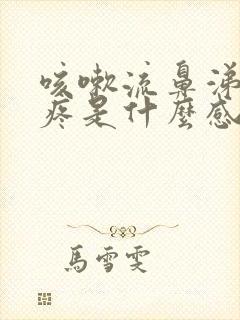 咳嗽流鼻涕
疼是什麼感
馬雪雯